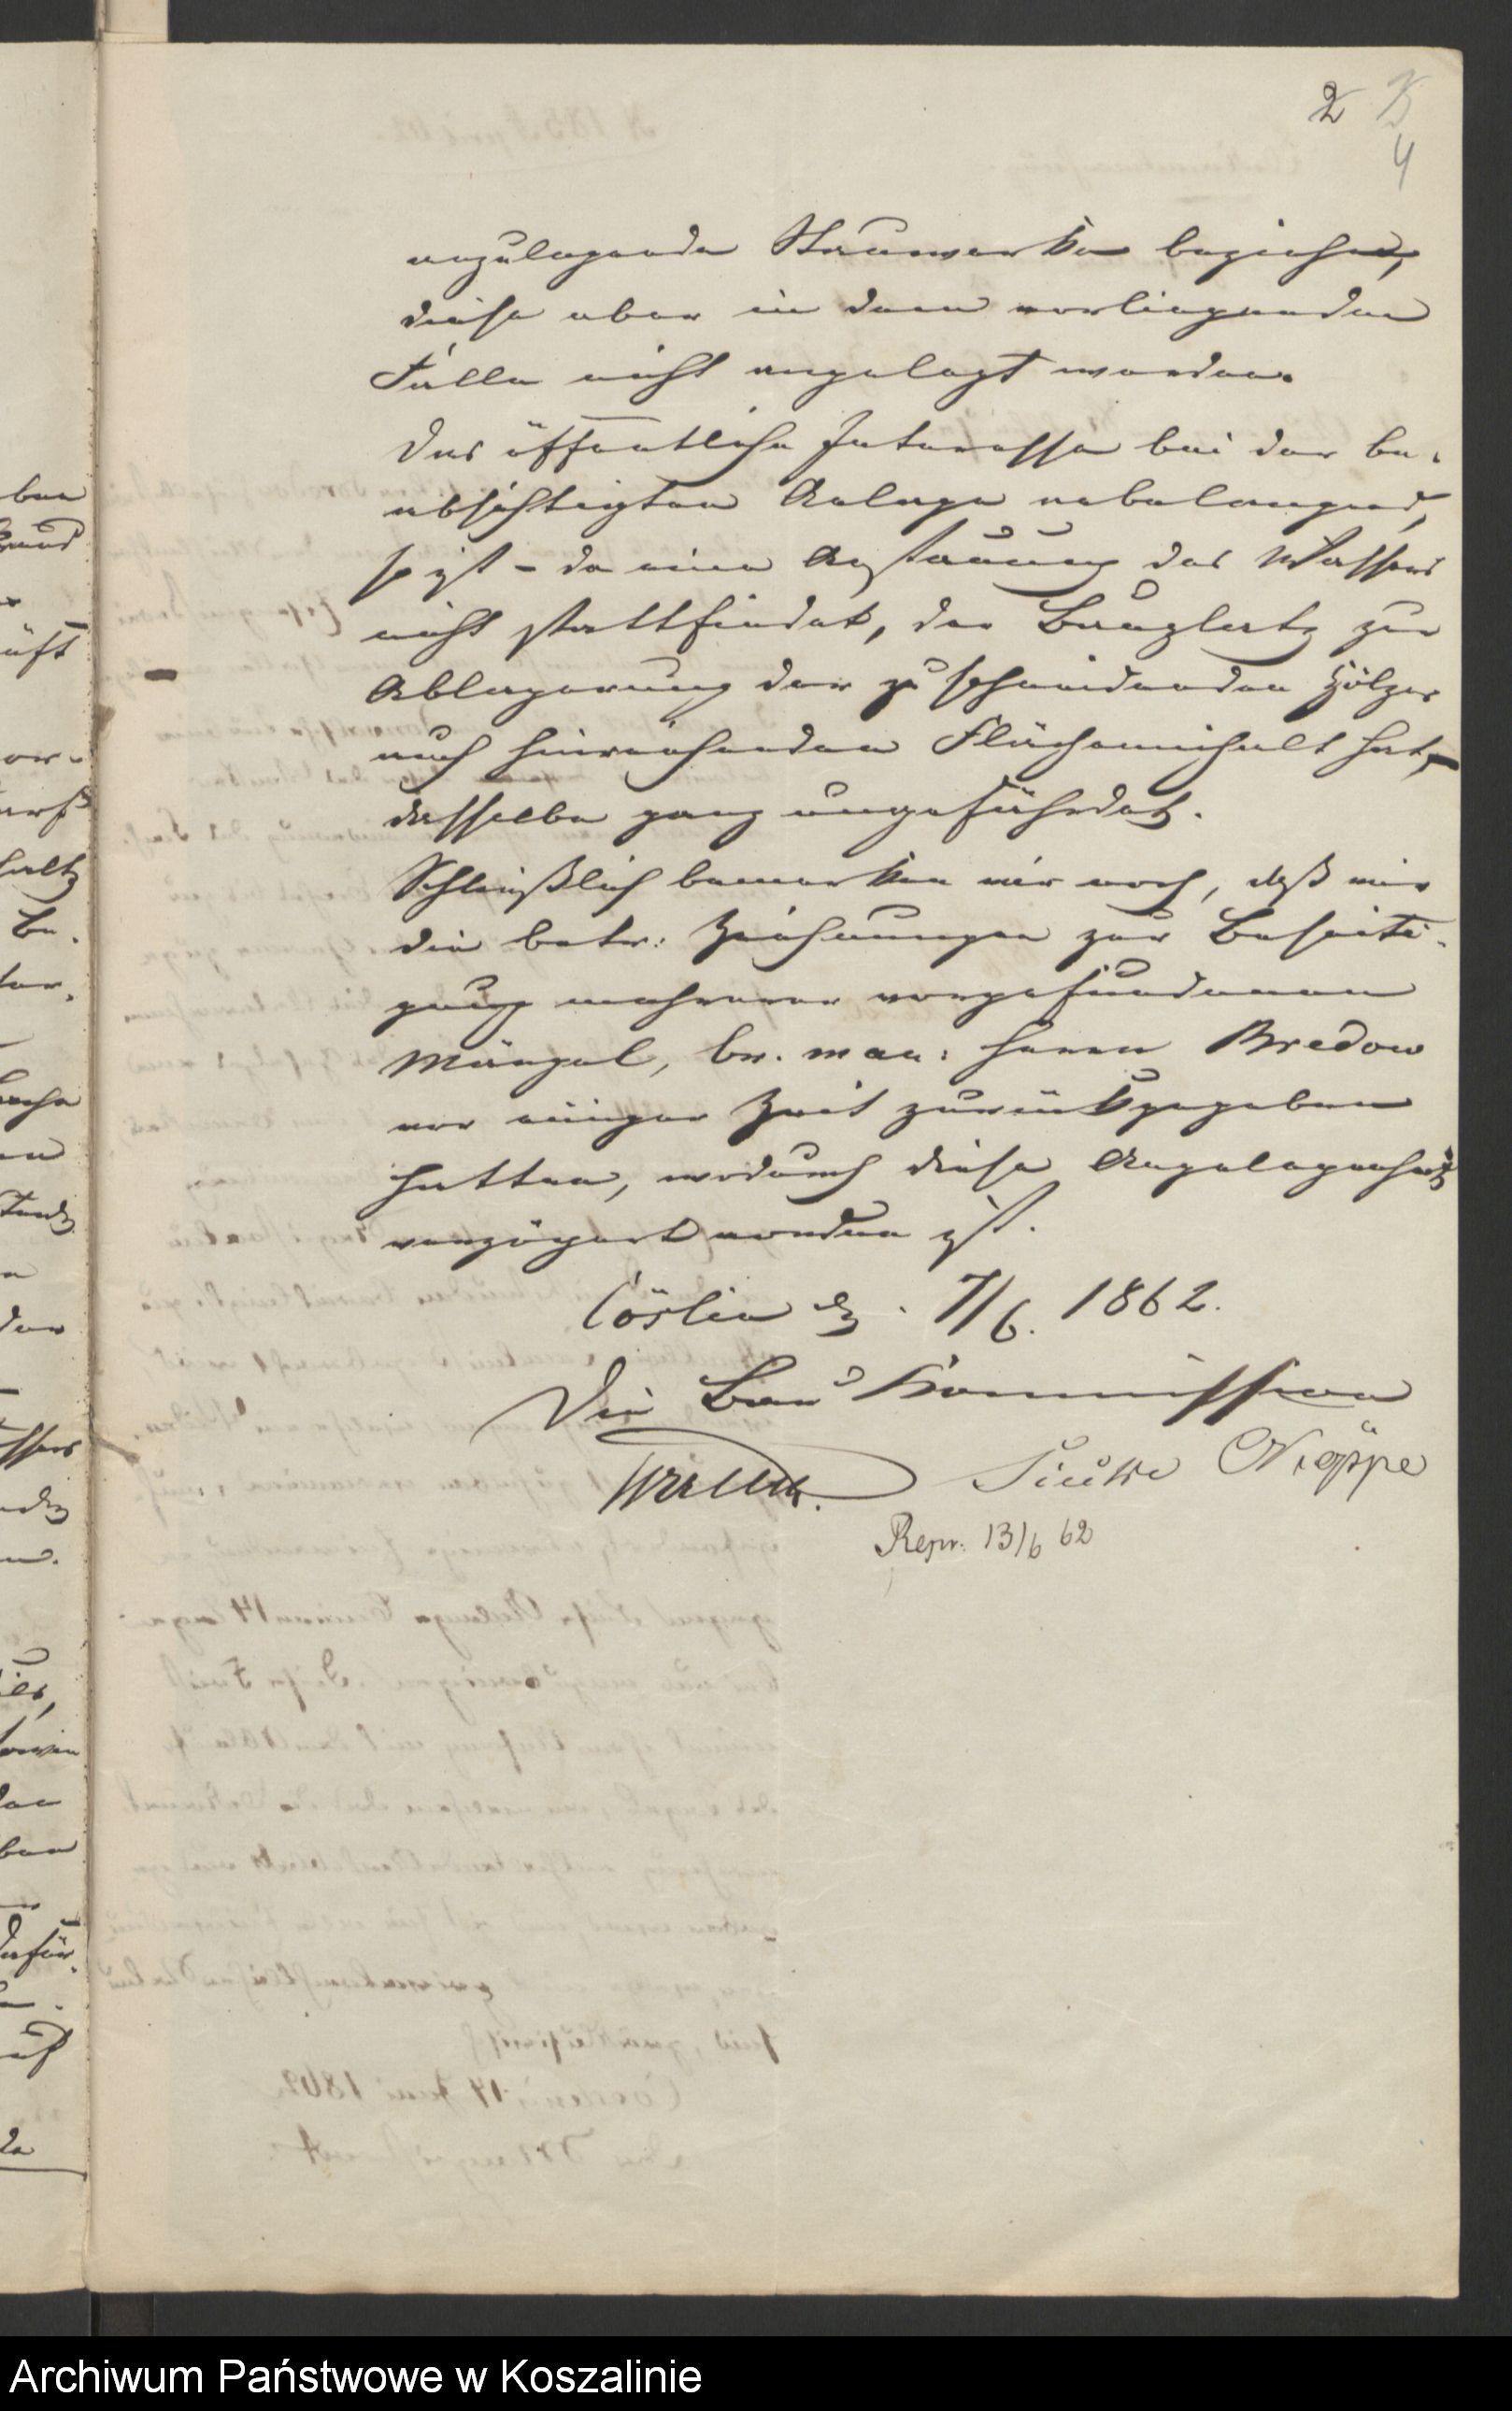 2
4
anzulegende Stauwerke beziehen,
diese aber in dem vorliegenden
Falle nicht angelegt werden.
Das öffentliche Interesse bei der be-
absichtigten Anlage anbelangend,
so ist – da eine Anstauung des Wassers
nicht stattfindet, der Bauplatz zur
Ablagerung der zu schneidenden Hölzer
auch hinreichenden Flächeninhalt hat,
dasselbe ganz ungefährdet.
Schließlich bemerken wir noch, daß wir
die betr: Zeichnungen zur Beseiti-
gung mehrerer vorgefundenen
Mängel, br. man: Herrn Bredow
vor einiger Zeit zurückgegeben
hatten, wodurch diese Angelegenheit
verzögert worden ist.
Cöslin d. 7/6. 1862.
Die Bau Kommission
Repr. 13/6 62
Archiwum Państwowe w Koszalinie